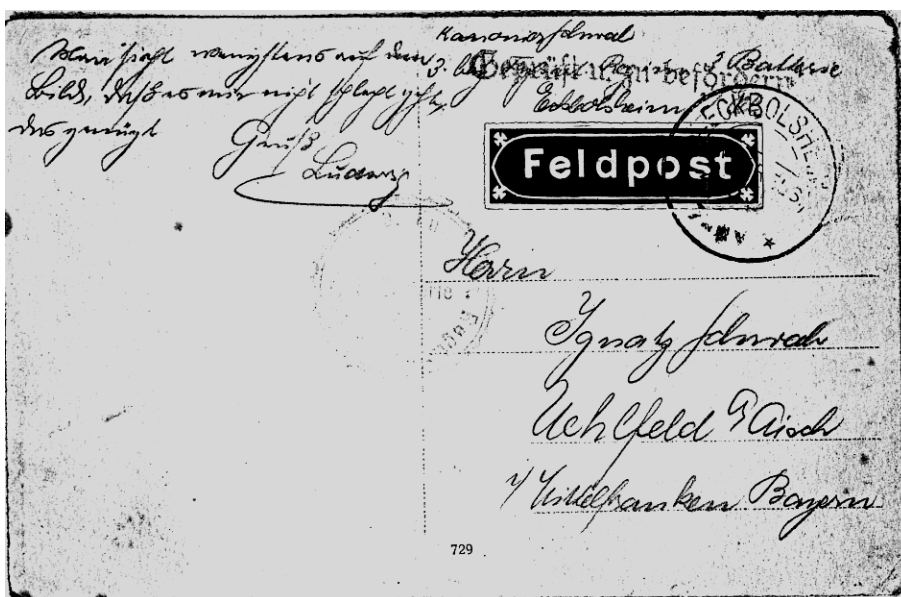 Man sieht wenigstens auf dem
Bild, daß es mir nicht schlecht geht,
das genügt
Gruß
Ludwig
Kanonier Schwab
3. 3 Batterie
Geprüft u. zu befördern
Eckbolsheim
ECKBOLSHEIM
Feldpost
Herrn
Ignatz Schwab
Uehlfeld a/Aisch
Mittelfranken Bayern
729